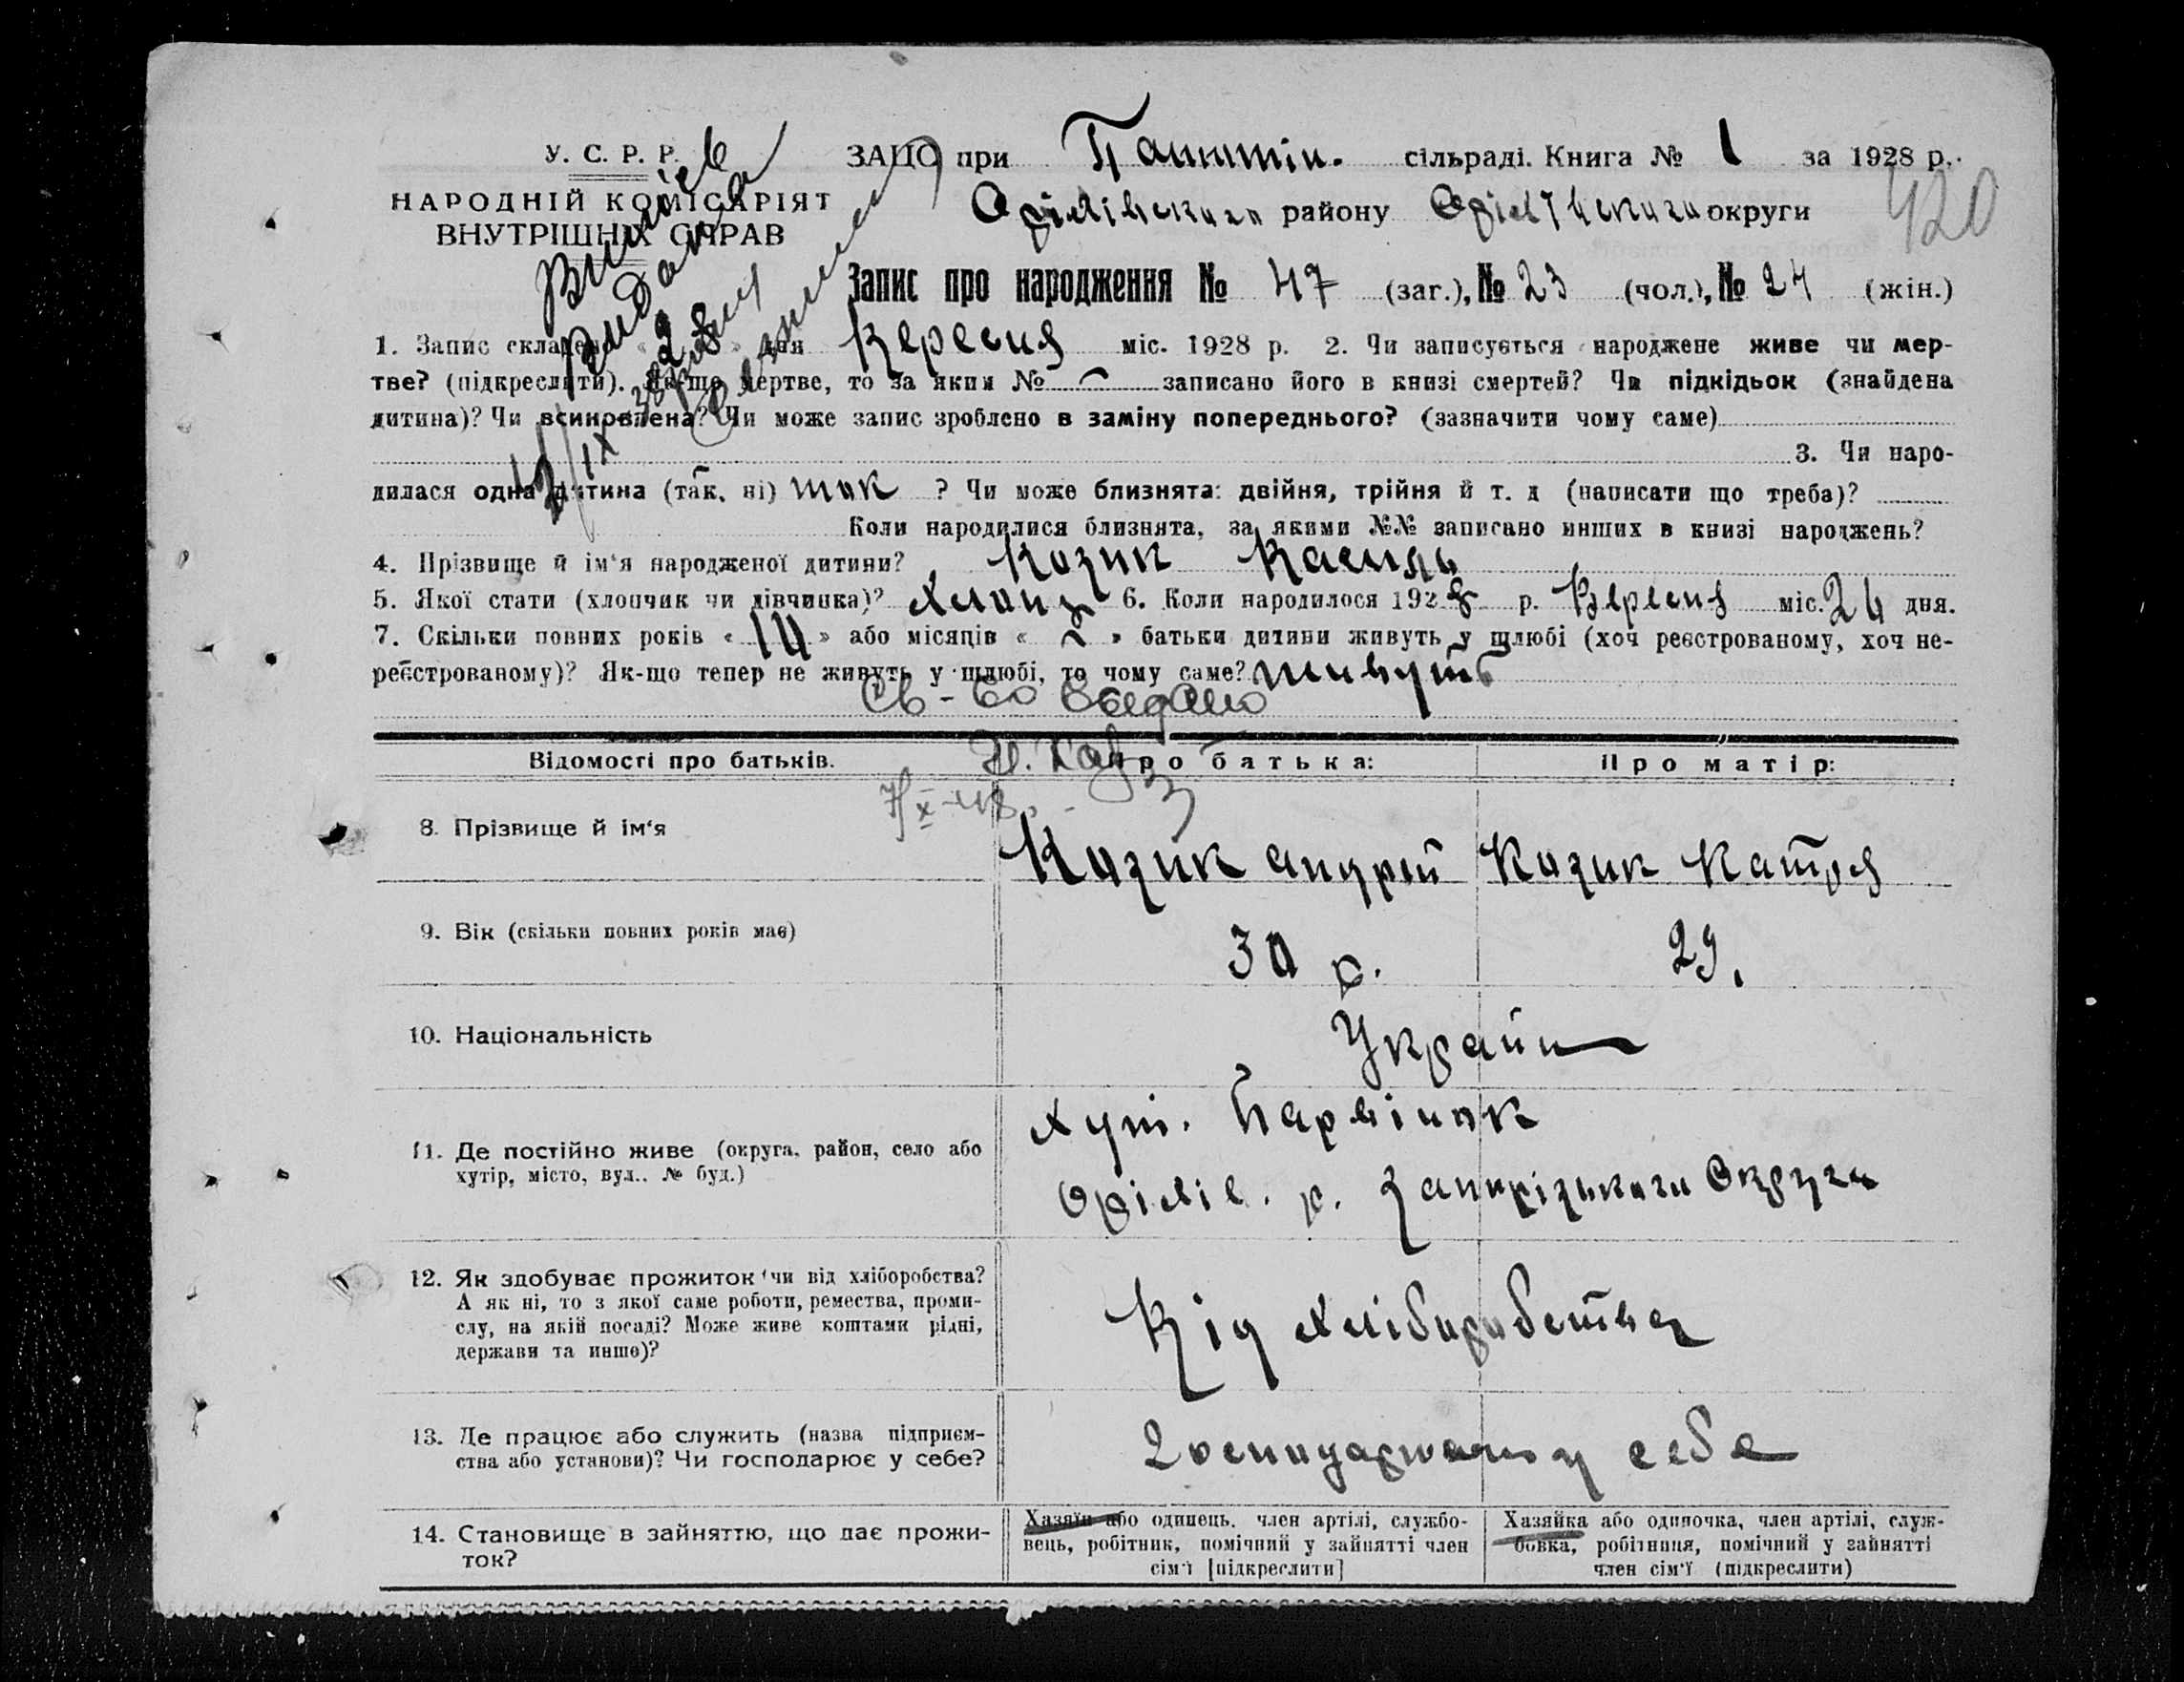 У. С. Р. Р.
НАРОДНІЙ КОМІСАРІЯТ
ВНУТРІШНІХ СПРАВ
ЗАЦС при сільраді. Книга № 1 за 1928 р.
Оріхівського району округи
420
Запис про народження № 47 (заг.), № 23 (чол.), № 24 (жін.)
Виписъ
видана
1. Запис складено « 28 » дня Вересня міс. 1928 р. 2. Чи записується народжене живе чи мер-
тве? (підкреслити). Як-що мертве, то за яким № — записано його в книзі смертей? Чи підкідьок (знайдена
дитина)? Чи всиновлена? Чи може запис зроблено в заміну попереднього? (зазначити чому саме)
3. Чи наро-
дилася одна дитина (так, ні) так ? Чи може близнята: двійня, трійня й т. д (написати що треба)?
Коли народилися близнята, за якими №№ записано инших в книзі народжень?
4. Прізвище й ім‘я народженої дитини? Козик Василь
5. Якої стати (хлопчик чи дівчинка)? Хлопц 6. Коли народилося 1928 р. Вересня міс. 24 дня.
7. Скільки повних років « 10 » або місяців « — » батьки дитини живуть у шлюбі (хоч реєстрованому, хоч не-
реєстрованому)? Як-що тепер не живуть у шлюбі, то чому саме? живуть
Св-во выдано
Відомості про батьків. Про батька: Про матір:
8. Прізвище й ім‘я Козик Андрій Козик Катря
9. Вік (скільки повних років має) 30 р. 29.
10. Національність Україн
11. Де постійно живе (округа, район, село або
хутір, місто, вул.. № буд.)
хут. Барвінок
Оріхів. р. Запорізького Округа
12. Як здобуває прожиток чи від хліборобства?
А як ні, то з якої саме роботи, ремества, проми-
слу, на якій посаді? Може живе коштами рідні,
держави та инше)?
Від Хліборобства
13. Де працює або служить (назва підприєм-
ства або установи)? Чи господарює у себе?
у себе
14. Становище в зайняттю, що дає прожи-
ток?
Хазяїн або одинець, член артілі, службо-
вець, робітник, помічний у зайнятті член
сім‘ї [підкреслити]
Хазяйка або одиночка, член артілі, служ-
бовка, робітниця, помічний у зайнятті
член сім‘ї (підкреслити)